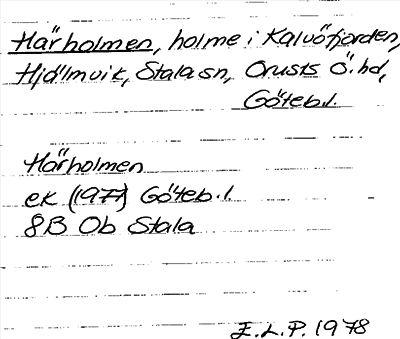 Härholmen, holme i Kalvöfjorden,
Hjälmvik, Stala sn, Orusts Ö. hd,
Göteb.l.
Härholmen
ek (1977) Göteb.l.
8B Ob Stala
E.L.P. 1978